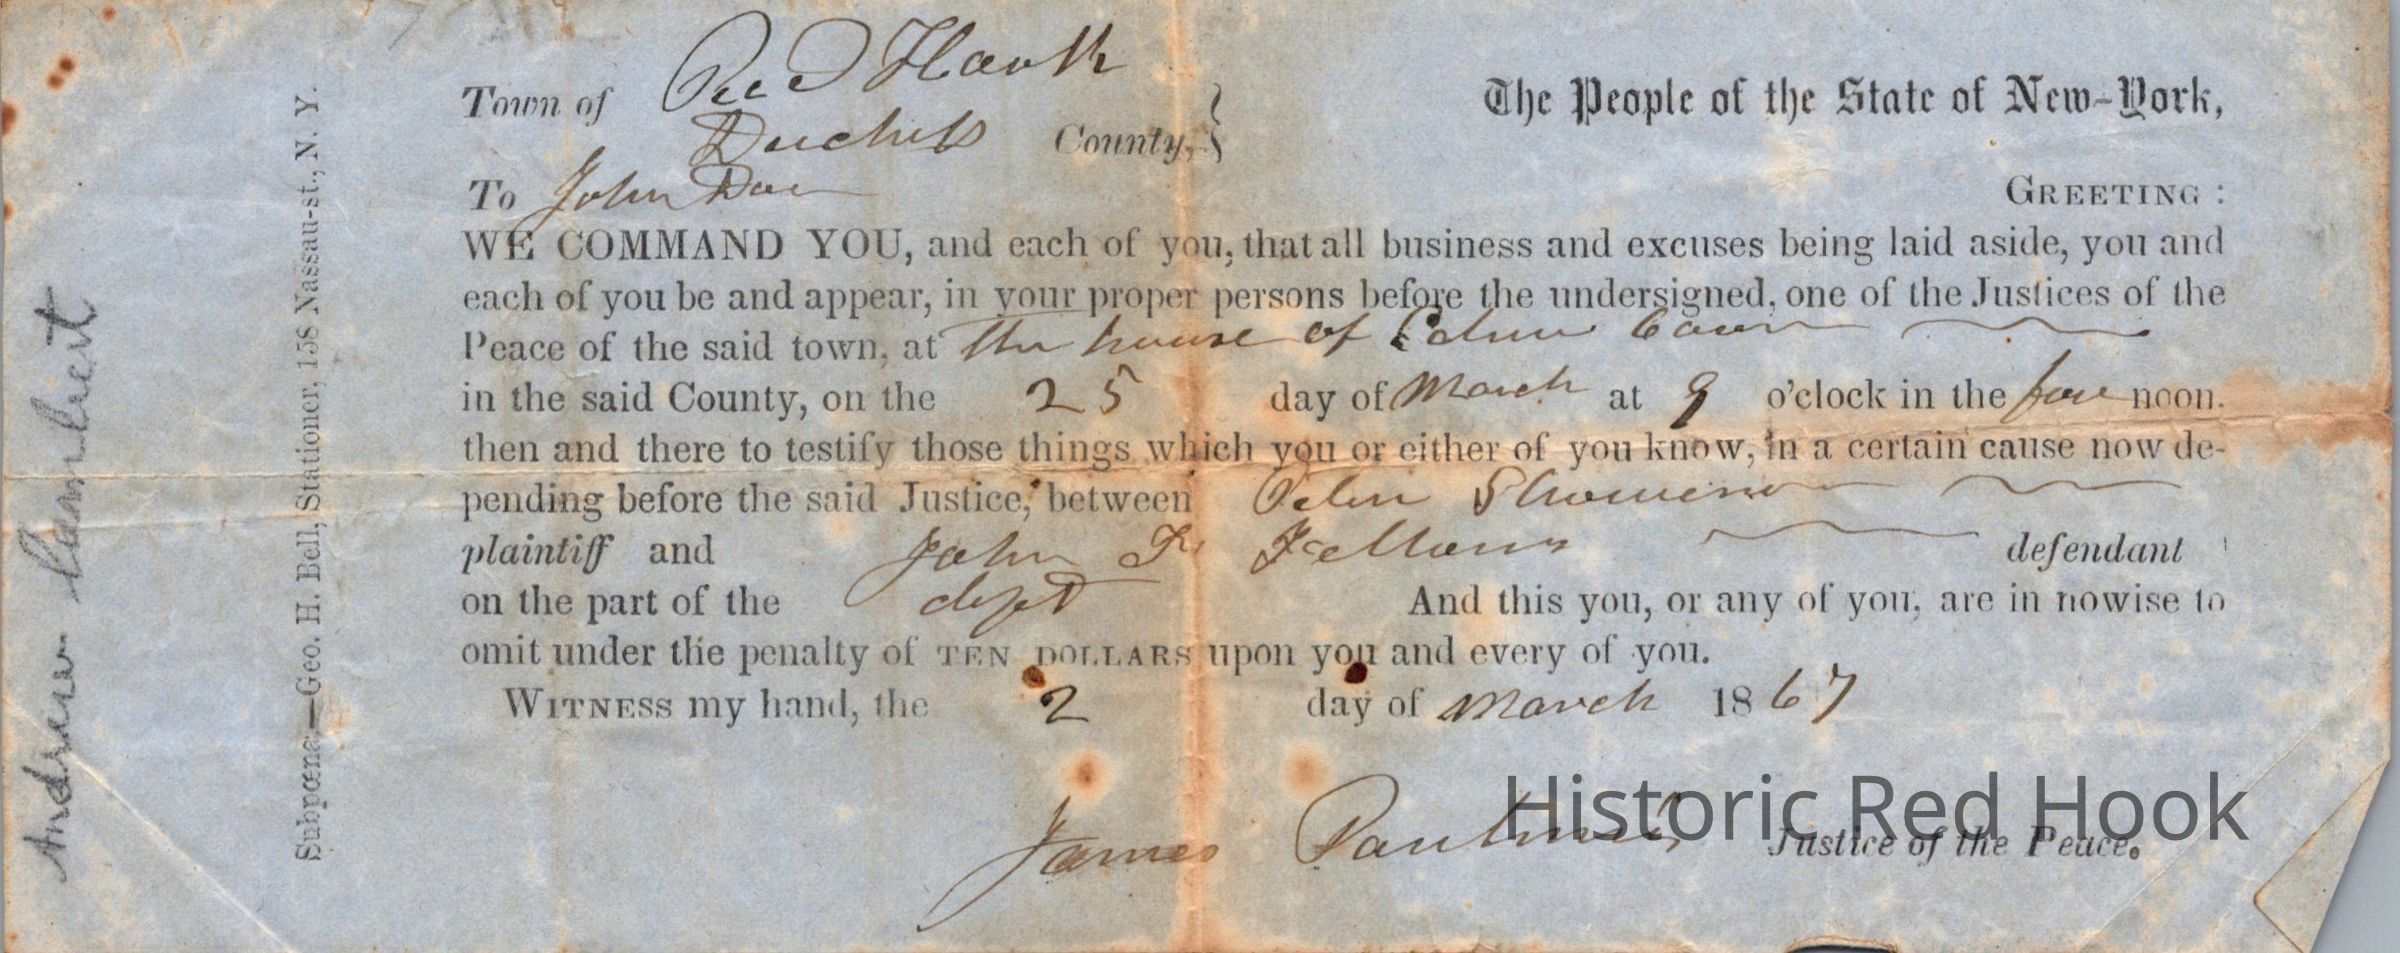 Town of Red Hook
Duchess County,
The People of the State of New-York,
To John Doe
GREETING :
WE COMMAND YOU, and each of you, that all business and excuses being laid aside, you and
each of you be and appear, in your proper persons before the undersigned, one of the Justices of the
Peace of the said town, at the house of
in the said County, on the 25 day of March at 9 o'clock in the fore noon.
then and there to testify those things which you or either of you know, in a certain cause now de-
pending before the said Justice, between
plaintiff and John F. Fellows defendant
on the part of the deft And this you, or any of you, are in nowise to
omit under the penalty of TEN DOLLARS upon you and every of you.
WITNESS my hand, the 2 day of March 1867
James Justice of the Peace.
Historic Red Hook
Subpœna—Geo. H. Bell, Stationer, 158 Nassau-st., N. Y.
Andrew Lambert